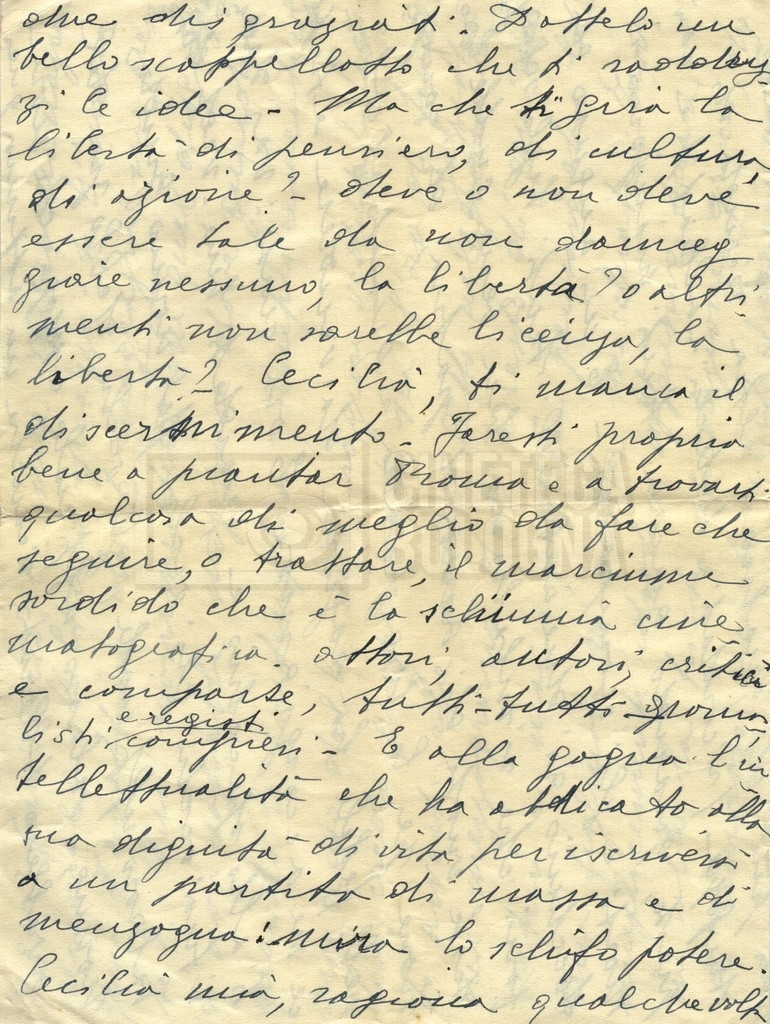 due disgraziati. Dottelo un
bello scappellotto che ti raddriz
zi le idee - Ma che ti gira la
libertà di pensiero, di cultura,
di azione? - deve o non deve
essere tale da non danneg
giare nessuno, la libertà? o altri
menti non sarebbe licenza, la
libertà? Cecilia, ti manca il
discernimento. Faresti proprio
bene a piantar Roma e a trovarti
qualcosa di meglio da fare che
seguire, o trattare, il marciume
sordido che è la schiuma cine
matografica. attori, autori, critici
e comparse, tutti-tutti giorna
listi e registi compresi - E alla gogna l'in
tellettualità che ha abdicato alla
sua dignità di vita per iscriversi
a un partito di massa e di
menzogna! mira lo schifo potere.
Cecilia mia, ragiona qualche volta
CINETECA
BOLOGNA